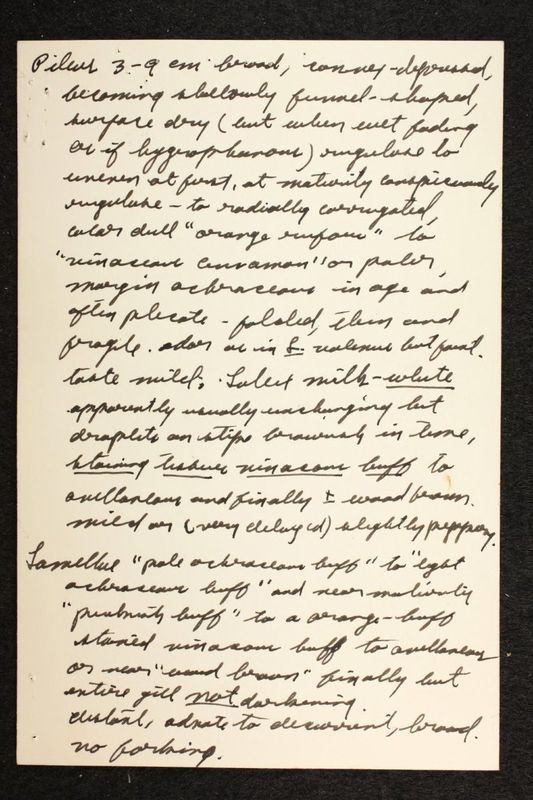 Pileus 3-9 cm broad, convex-depressed,
becoming shallowly funnel-shaped,
surface dry (but when wet fading
as if hygrophanous) rugulose to
uneven at first, at maturity conspicuously
rugulose - to radially corrugated,
color dull "orange rufous" to
"vinaceous cinnamon" or paler,
margin ochraceous in age and
often plicate - folded, thin and
fragile. odor as in L. volemus but faint.
taste mild. Latex milk-white
apparently usually unchanging but
droplets on stipe brownish in time,
staining tissues vinaceous buff to
avellaneous and finally ± wood brown.
mild or (very delayed) slightly peppery.
Lamellae "pale ochraceous buff" to "light
ochraceous buff" and near maturity
"pinkish buff" to a orange-buff
stained vinaceous buff to avellaneous
or near "wood brown" finally but
entire gill not darkening.
distant, adnate to decurrent, broad.
no forking.